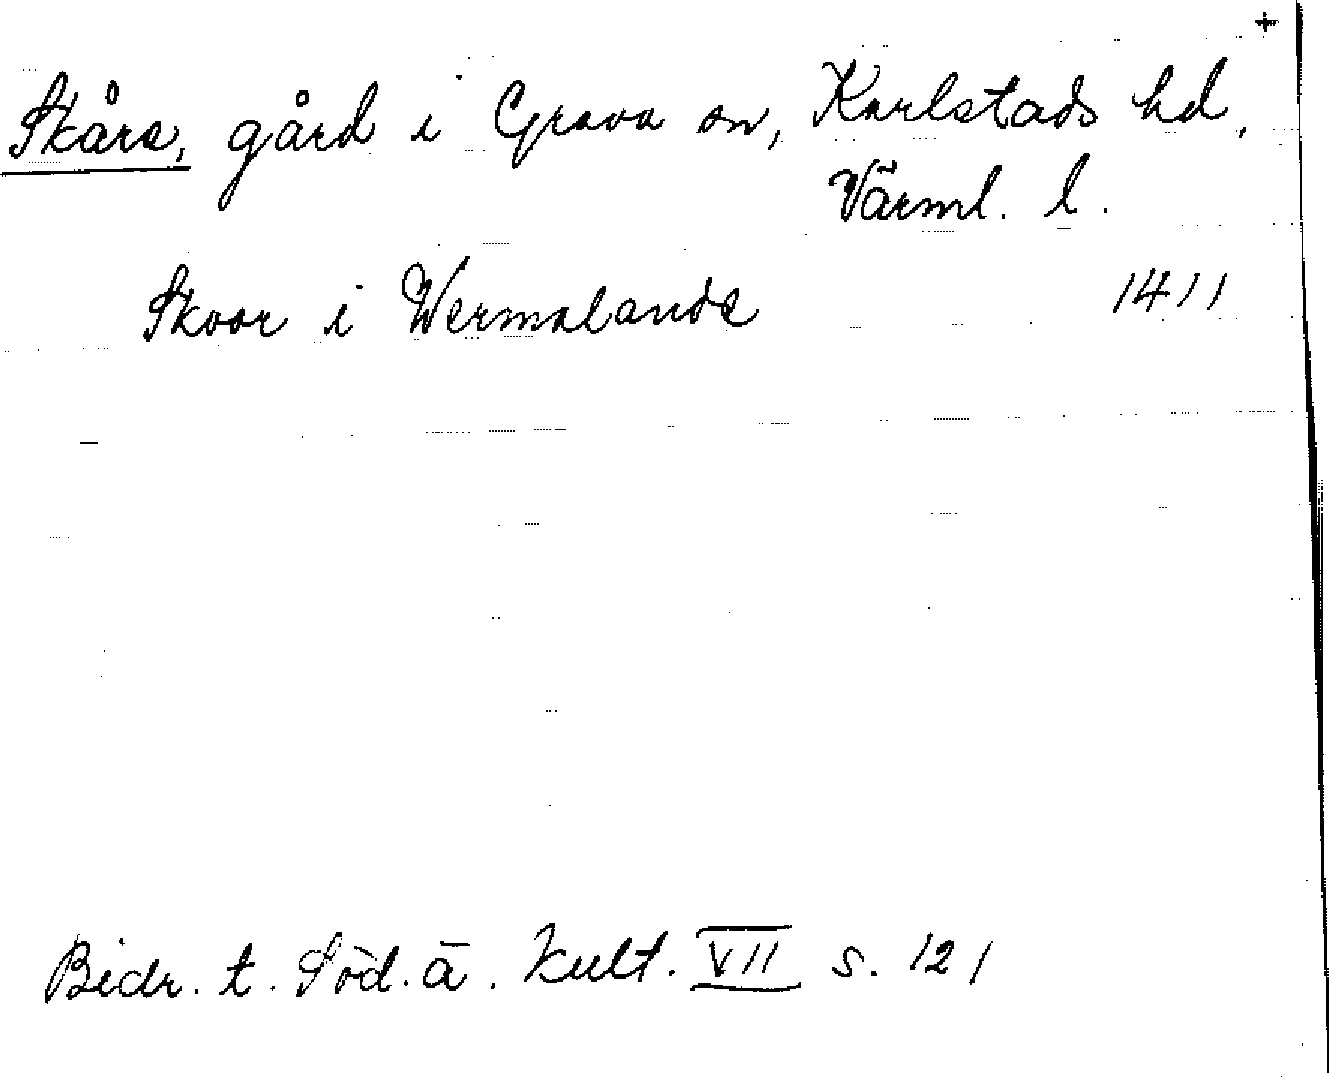 +
Skåre, gård i Grava sn, Karlstads hd,
Värml. l.
Skoor i Wermalande 1411
Bidr. t. Söd. ä. kult. VII s. 121